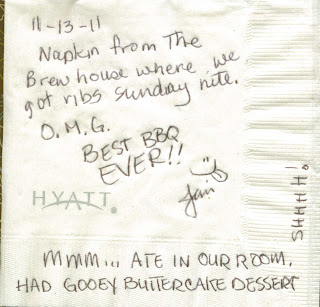 11-13-11
Napkin from The
Brewhouse where we
got ribs Sunday nite.
O.M.G.
BEST BBQ
EVER!!
HYATT®
SHHHH!
MMM... ATE IN OUR ROOM.
HAD GOOEY BUTTERCAKE DESSERT